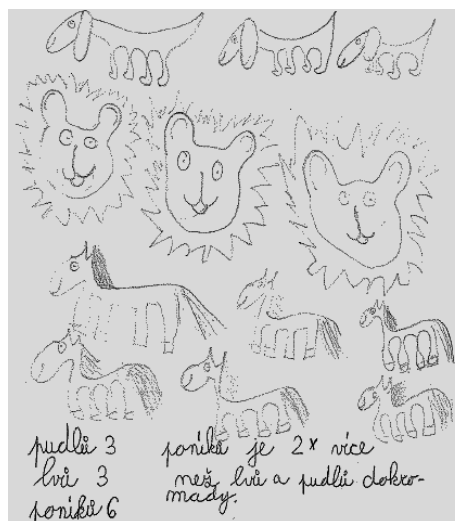 pudlů 3
lvů 3
poníků 6
poníků je 2x více
než lvů a pudlů dokro-
mady.